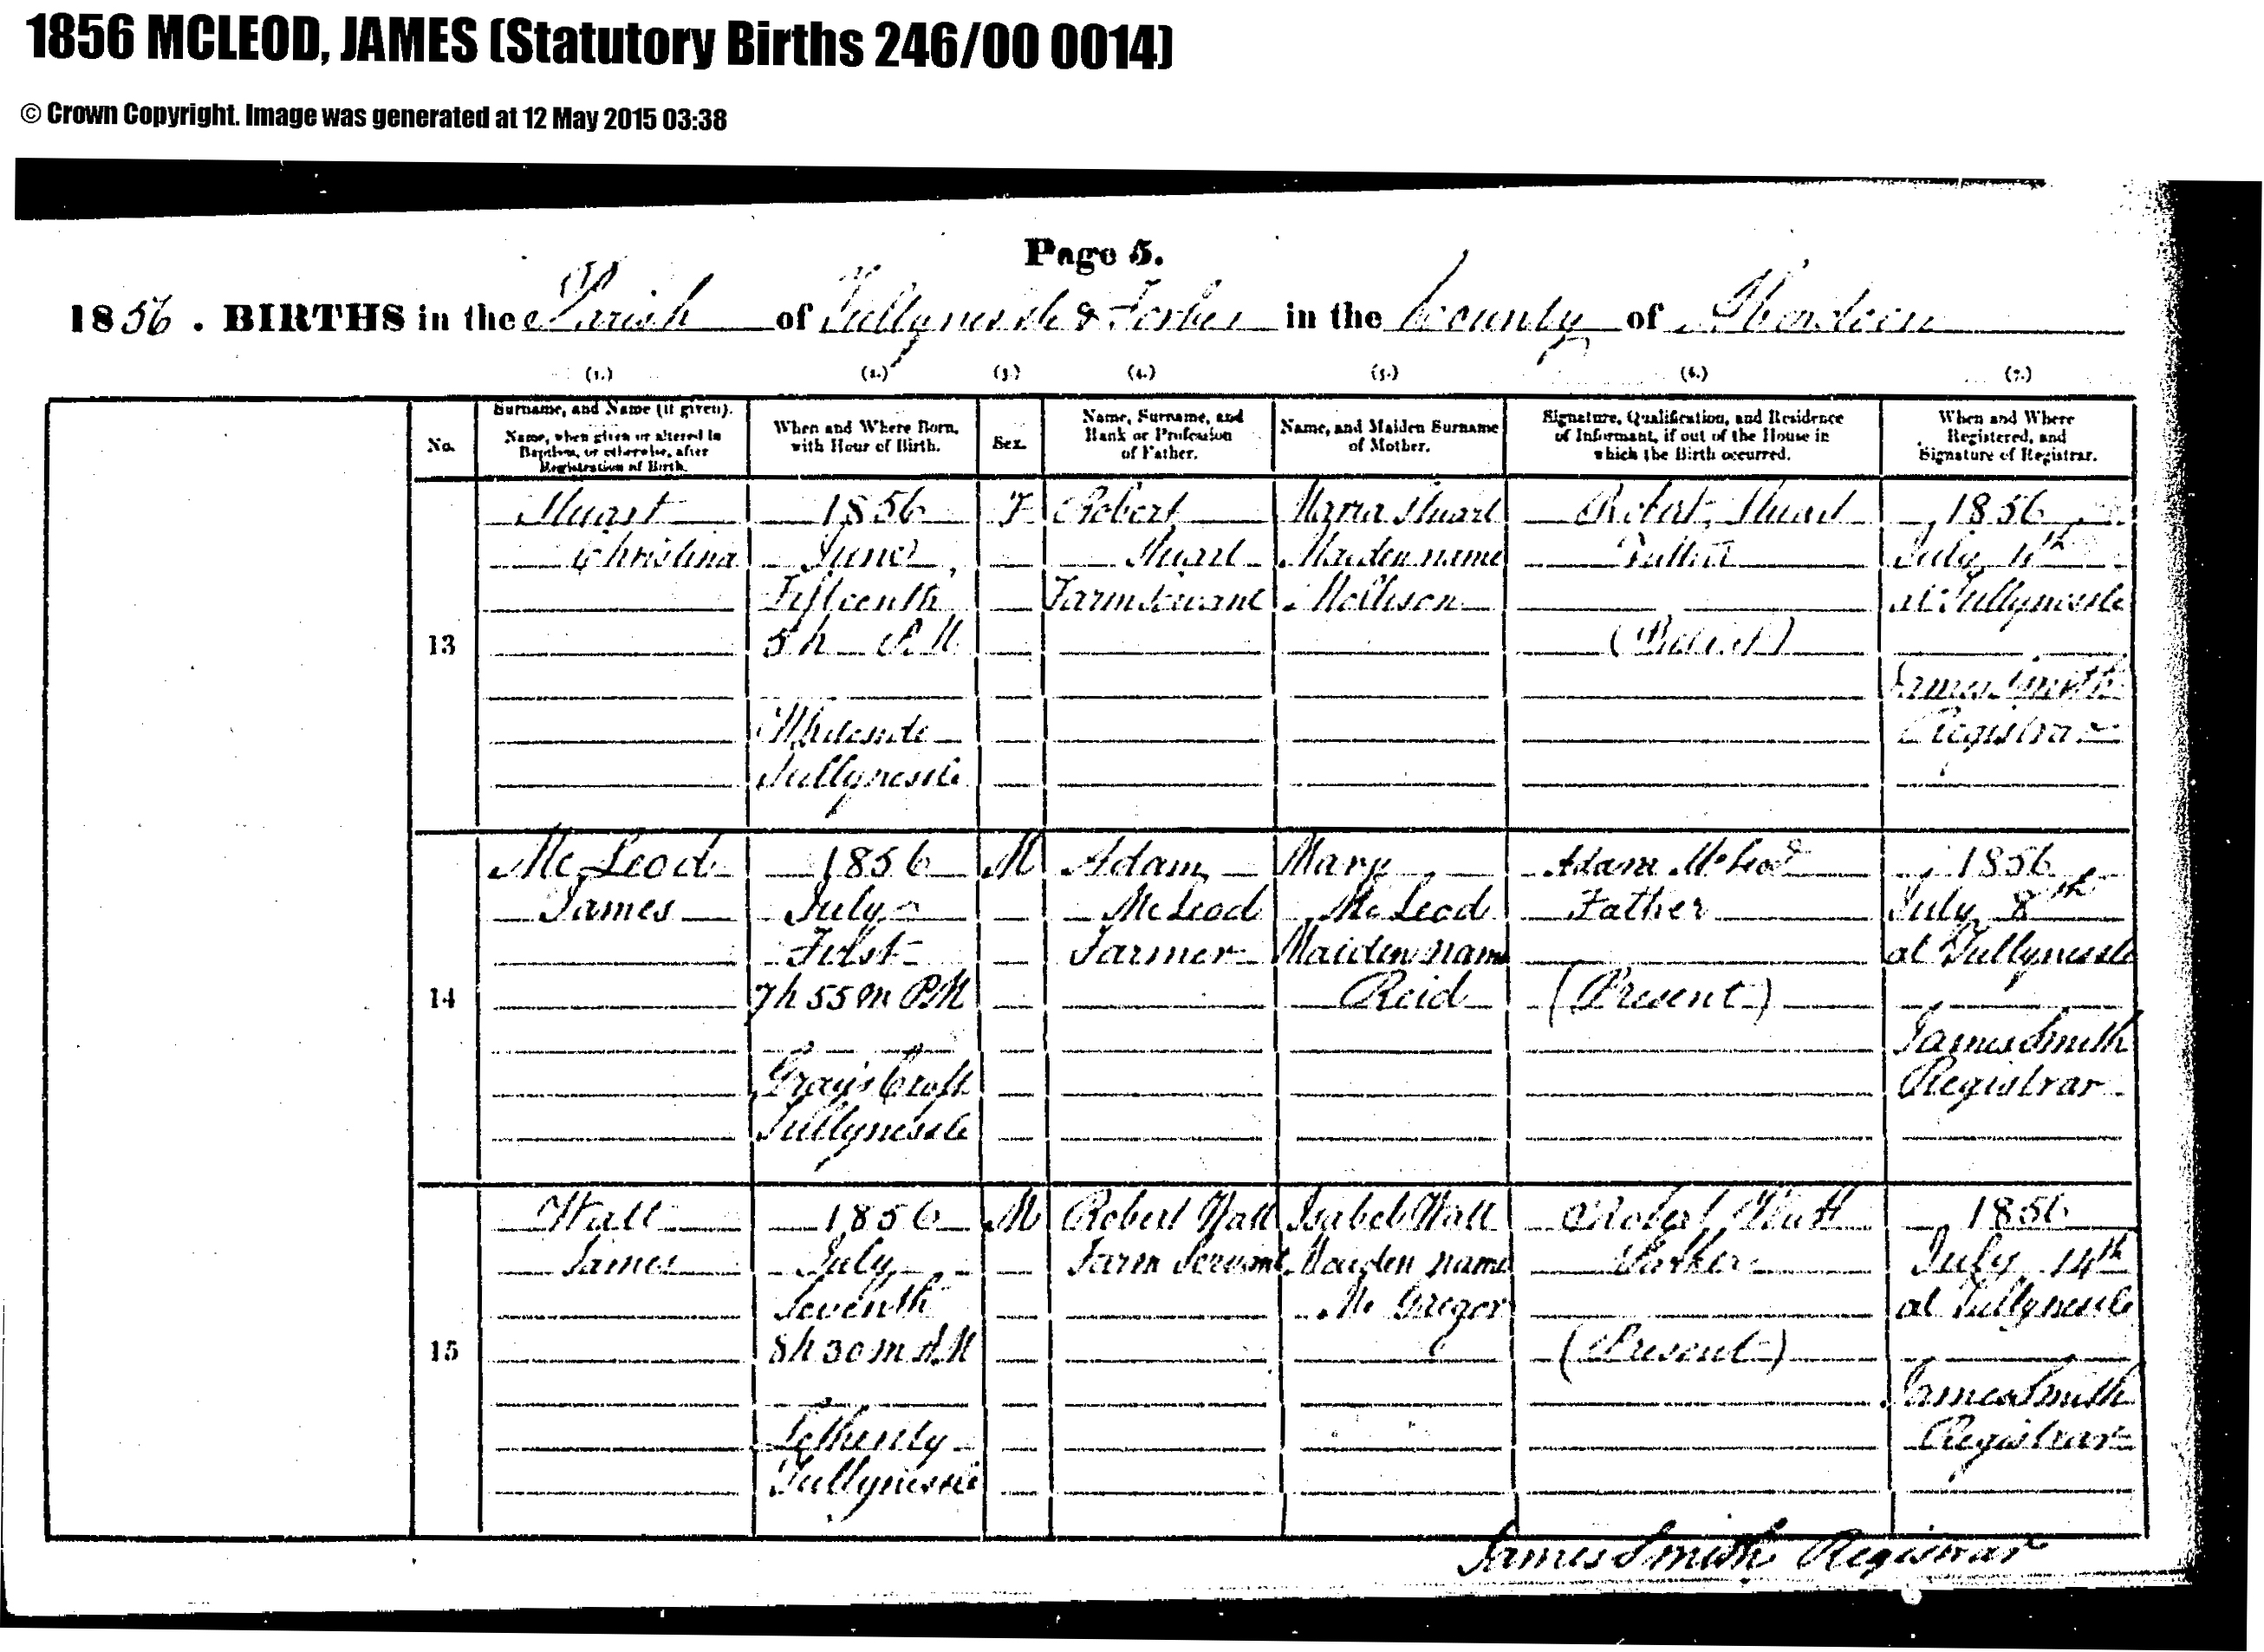 1856 MCLEOD, JAMES (Statutory Births 246/00 0014)
© Crown Copyright. Image was generated at 12 May 2015 03:38
Page 5.
1856. BIRTHS in the Parish of Tullynessle & Forbes in the County of Aberdeen
(1.) (2.) (3.) (4.) (5.) (6.) (7.)
No.
Surname, and Name (if given).
Name, when given or altered in
Baptism, or otherwise, after
Registration of Birth.
When and Where Born,
with Hour of Birth.
Sex.
Name, Surname, and
Rank or Profession
of Father.
Name, and Maiden Surname
of Mother.
Signature, Qualification, and Residence
of Informant, if out of the House in
which the Birth occurred.
When and Where
Registered, and
Signature of Registrar.
13
Stuart
Christina
1856
June
Fifteenth
5h
Tullynessle
F
Robert
Stuart
Farm Servant
Maria Stuart
Maiden name
Mollison
Robert Stuart
Father
(Present)
1856
July
at Tullynessle
James Smith
Registrar
14
McLeod
James
1856
July
First
7h 55m PM
Gray's Croft
Tullynessle
M
Adam
McLeod
Farmer
Mary
McLeod
Maiden name
Reid
Adam McLeod
Father
(Present)
1856
July 8th
at Tullynessle
James Smith
Registrar
15
Watt
James
1856
July
Seventh
8h 30m A.M
Tullynessle
M
Robert Watt
Farm Servant
Isabel Watt
Maiden name
McGregor
Robert Watt
Father
(Present)
1856
July 14th
at Tullynessle
James Smith
Registrar
James Smith Registrar